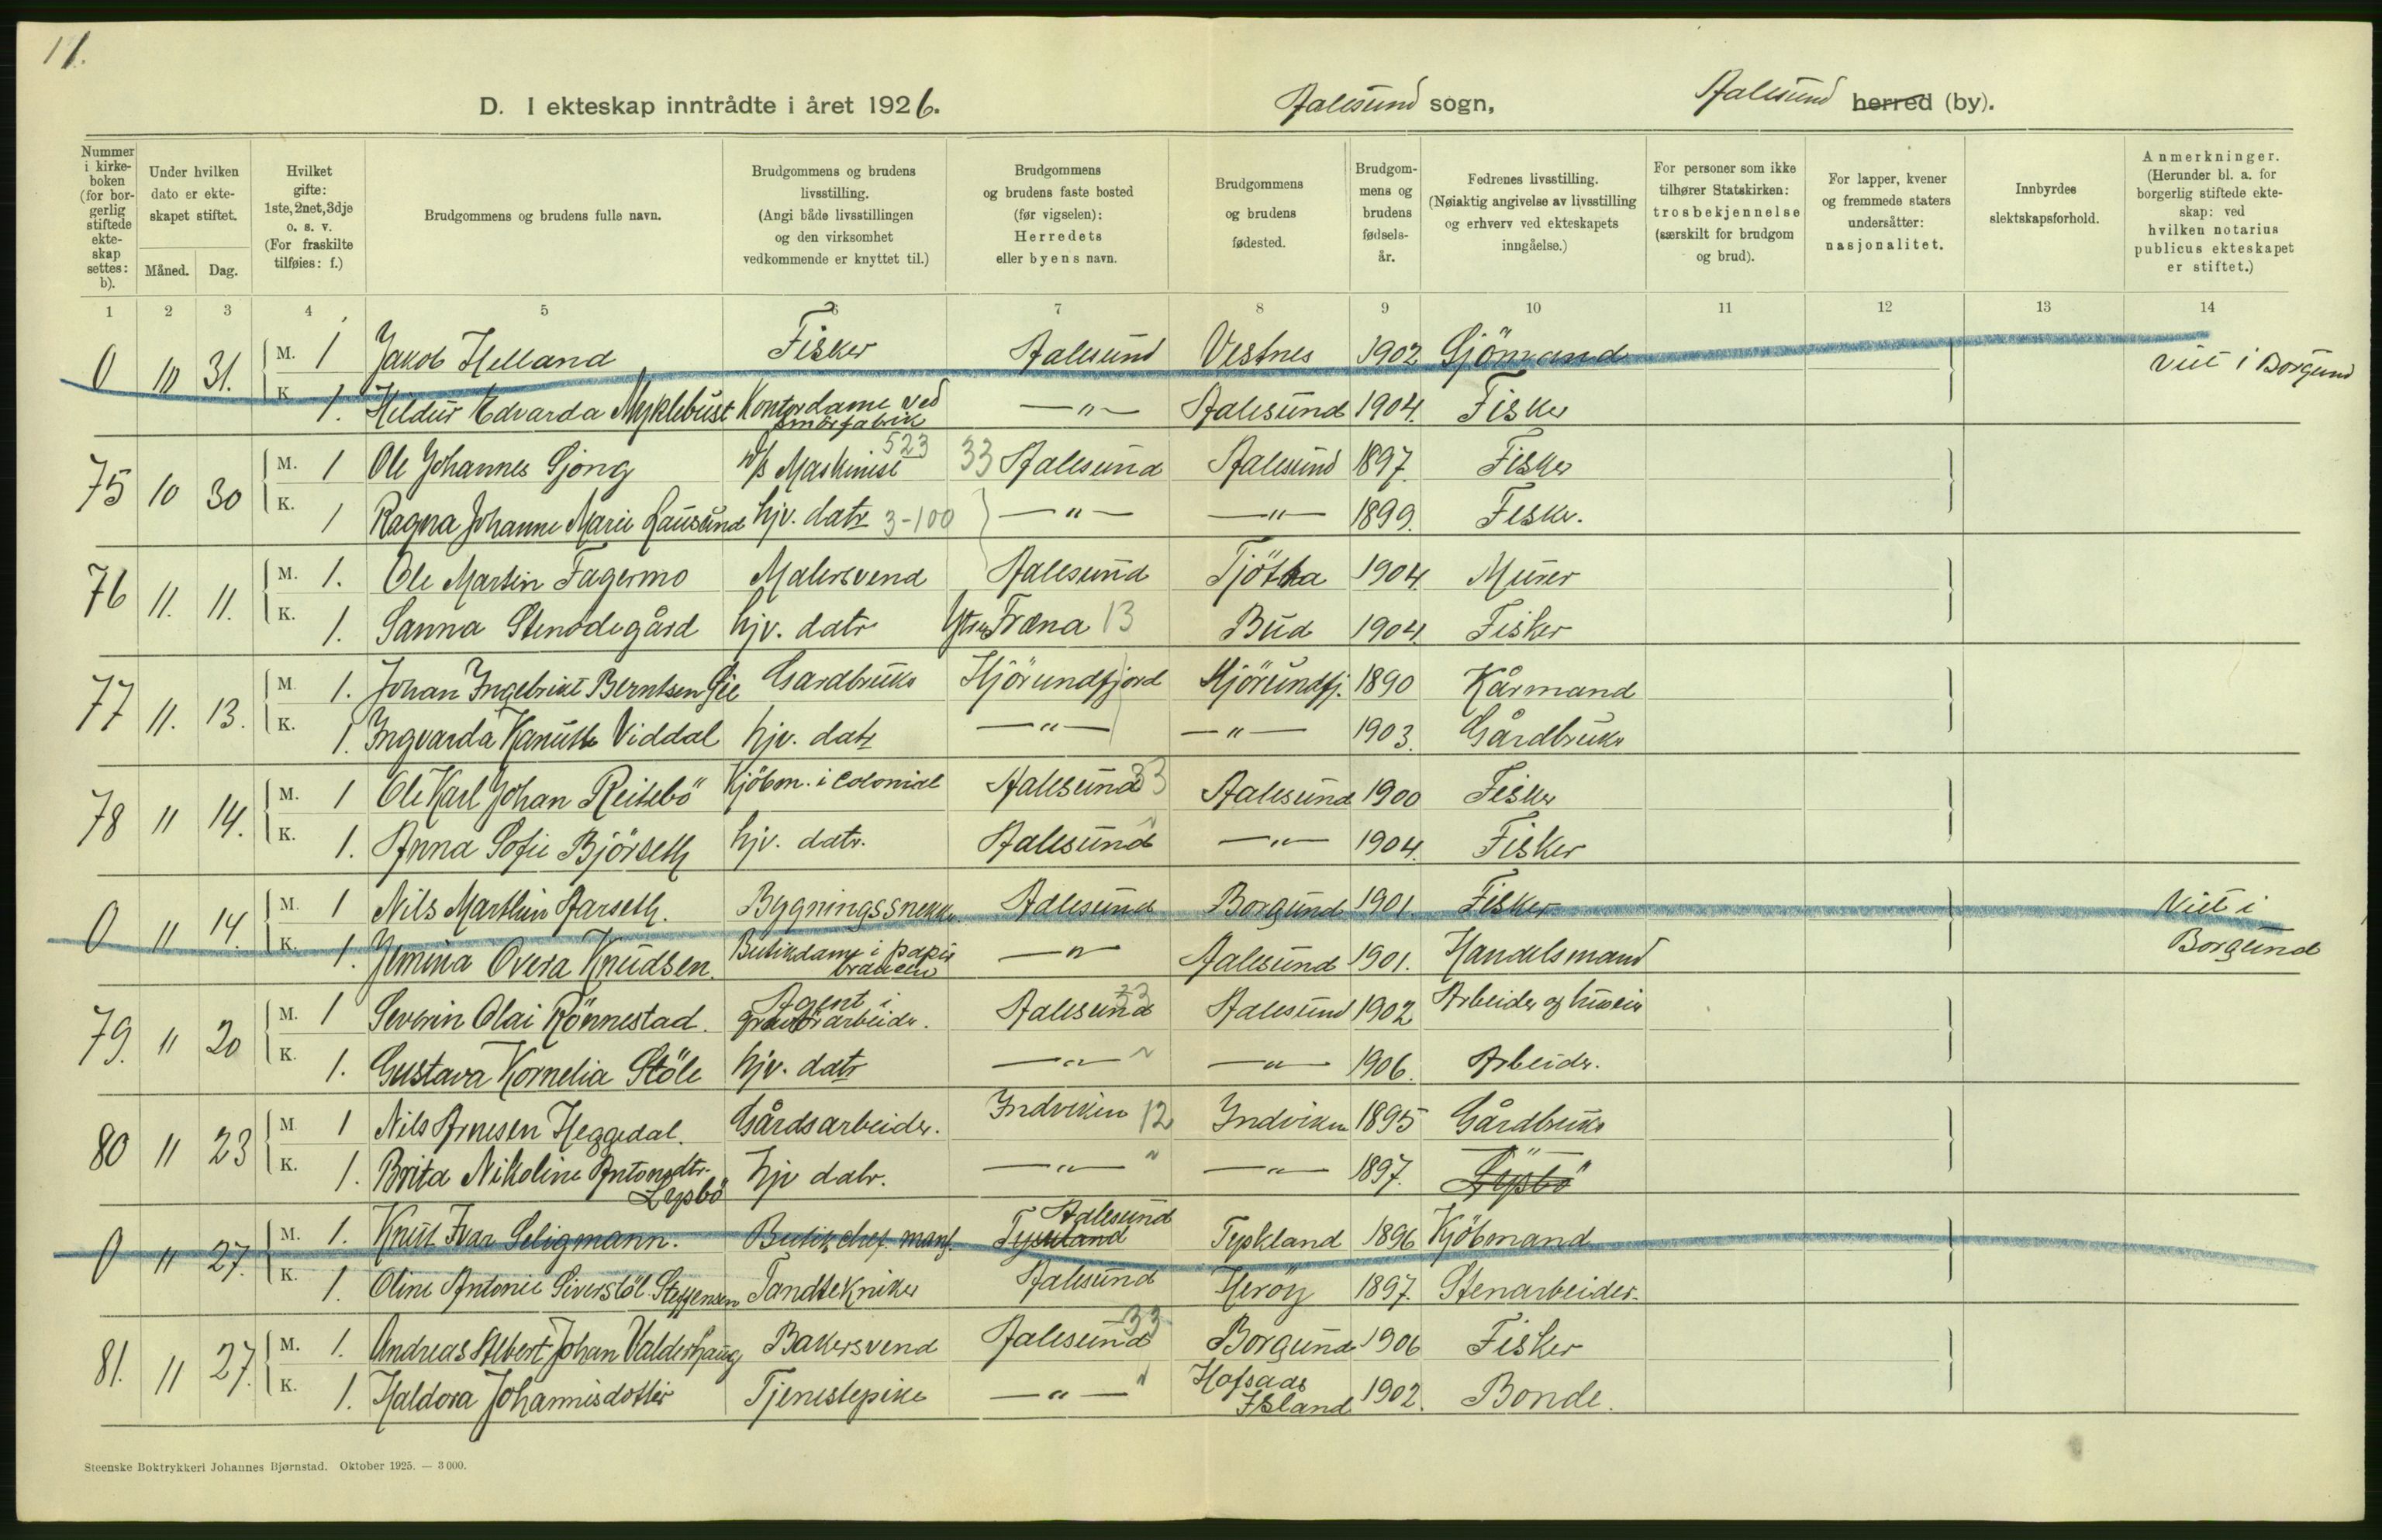 11.
D. I ekteskap inntrådte i året 1926. Aalesund sogn, Aalesund herred (by).
Nummer i kirkeboken (for borgerlig stiftede ekteskap settes: b).
Under hvilken dato er ekteskapet stiftet.
Måned. Dag.
Hvilket gifte: 1ste, 2net, 3dje o. s. v. (For fraskilte tilføies: f.)
Brudgommens og brudens fulle navn.
Brudgommens og brudens livsstilling. (Angi både livsstillingen og den virksomhet vedkommende er knyttet til.)
Brudgommens og brudens faste bosted (før vigselen): Herredets eller byens navn.
Brudgommens og brudens fødested.
Brudgommens og brudens fødselsår.
Fedrenes livsstilling. (Nøiaktig angivelse av livsstilling og erhverv ved ekteskapets inngåelse.)
For personer som ikke tilhører Statskirken: trosbekjennelse (særskilt for brudgom og brud).
For lapper, kvener og fremmede staters undersåtter: nasjonalitet.
Innbyrdes slektskapsforhold.
Anmerkninger. (Herunder bl. a. for borgerlig stiftede ekteskap: ved hvilken notarius publicus ekteskapet er stiftet.)
1 2 3 4 5 6 7 8 9 10 11 12 13 14
0 10 31. M. 1 Jakob Helland Fisker Aalesund Vestnes 1902 Sjömand Viet i Borgund
K. 1. Hildur Edvarda Myklebust Kontordame ved smörfabrik —"— Aalesund 1904. Fisker
75 10 30 M. 1 Ole Johannes Gjöng D/S Maskinist 523 33 Aalesund Aalesund 1897. Fisker
K. 1 Ragna Johanne Marie Lausund hjv. datr 3-100 —"— —"— 1899. Fisker.
76 11. 11. M. 1. Ole Martin Fagermo Malersvend Aalesund Tjötta 1904. Murer
K. 1. Sanna Stenödegård hjv. datr Ytre Fræna 13 Bud 1904. Fisker
77 11. 13. M. 1. Johan Ingebrikt Berntsen Lie Gardbruker Hjörundfjord Hjörundfj. 1890 Kårmand
K. 1. Ingvarda Kanutte Viddal hjv. datr —"— —"— 1903. Gårdbruker
78 11 14. M. 1 Ole Karl Johan Reitebö Kjöbm. i colonial Aalesund 33 Aalesund 1900 Fisker
K. 1. Anna Sofie Björseth hjv. datr. Aalesund —"— 1904. Fisker
0 11 14. M. 1 Nils Marthin Aarseth. Bygningssnekker Aalesund Borgund 1901. Fisker Viet i
K. 1. Jemina Overa Knudsen. Butikdame i papir branchen —"— Aalesund 1901. Handelsmand Borgund
79. 11 20 M. 1 Severin Olai Rönnestad. Agent i gravörarbeider. Aalesund 33 Aalesund 1902 Arbeider og huseier
K. 1. Gustava Kornelia Störe hjv. datr —"— " —"— 1906. Arbeider.
80 11 23 M. 1 Nils Arnesen Heggedal. Gårdsarbeider. Indviken 12 Indviken 1895 Gårdbruker
K. 1. Brita Nikoline Antonsdtr. Lysbö hjv datr. —"— " —"— 1897. Lysbö
0 11 27. M. 1. Knut Ivar Seligmann. Butikchef. manf. Tyskland Aalesund Tyskland 1896 Kjöbmand
K. 1. Oline Antonie Siverstöl Steffensen Tandtekniker Aalesund Heröy 1897. Stenarbeider.
81. 11 27. M. 1. Andreas Albert Johan Valderhaug Bakersvend Aalesund 33 Borgund 1906 Fisker
K. 1. Haldora Johannisdotter Tjenestepike —"— " Hofsaas Island 1902. Bonde.
Steenske Boktrykkeri Johannes Bjørnstad. Oktober 1925. — 3 000.